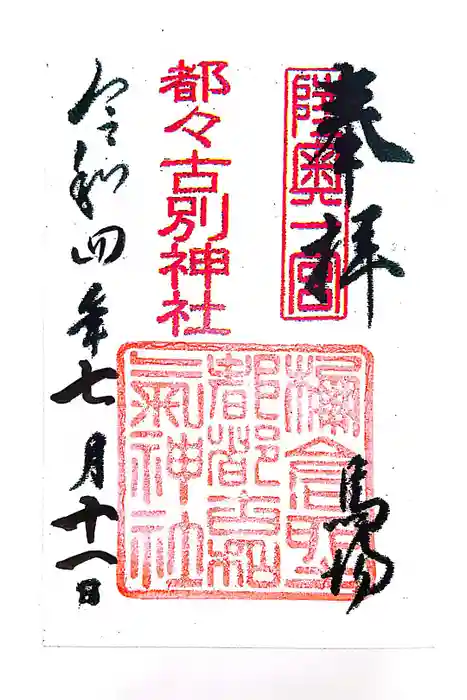 奉拝
陸奥一宮
馬場
都々古別神社
都都古和
氣神社
令和四年七月十八日